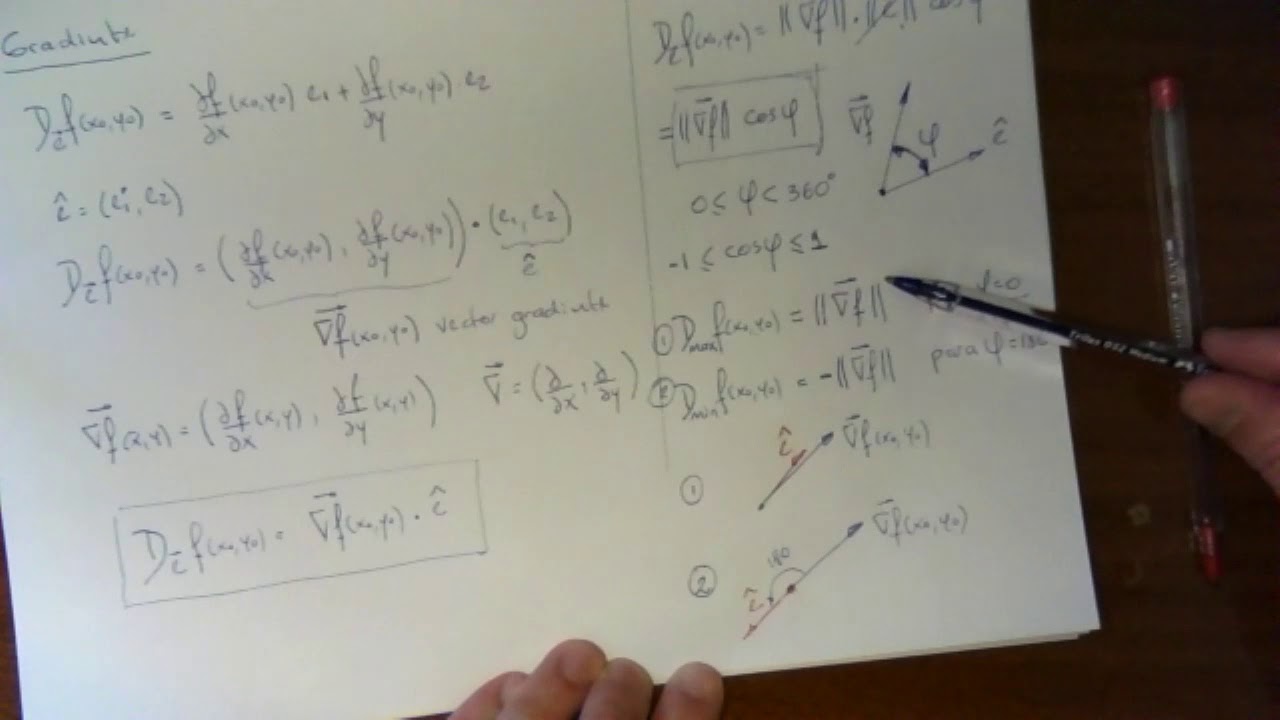 Gradiente
D_ê f(x₀,y₀) = ∂f/∂x (x₀,y₀) e₁ + ∂f/∂y (x₀,y₀) e₂
ê = (e₁, e₂)
D_ê f(x₀,y₀) = (∂f/∂x (x₀,y₀), ∂f/∂y (x₀,y₀)) · (e₁, e₂)
ê
∇⃗f(x₀,y₀) vector gradiente
∇⃗f(x,y) = (∂f/∂x (x,y), ∂f/∂y (x,y))
∇⃗ = (∂/∂x, ∂/∂y)
D_ê f(x₀,y₀) = ∇⃗f(x₀,y₀) · ê
D_ê f(x₀,y₀) = ||∇⃗f|| · ||ê|| cosφ
= ||∇⃗f|| cosφ
∇⃗f φ ê
0 ≤ φ < 360°
-1 ≤ cosφ ≤ 1
① D_max f(x₀,y₀) = ||∇⃗f|| φ=0
② D_min f(x₀,y₀) = -||∇⃗f|| para φ=180
① ê ∇⃗f(x₀,y₀)
② ê 180 ∇⃗f(x₀,y₀)